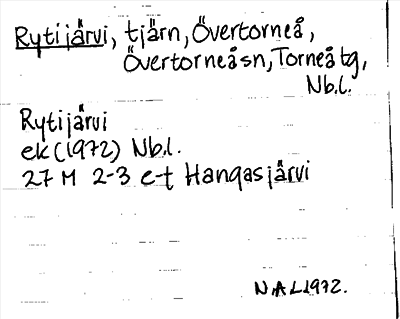 Rytijärvi, tjärn, Övertorneå,
Övertorneåsn, Torneå tg,
Nb.l.
Rytijärvi
ek (1972) Nb.l.
27 M 2-3 e-t Hangasjärvi
N A L 1972.